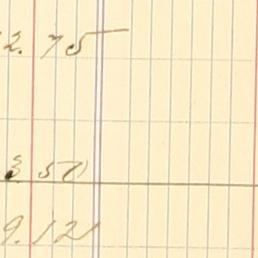 2.75
3 50
9.12